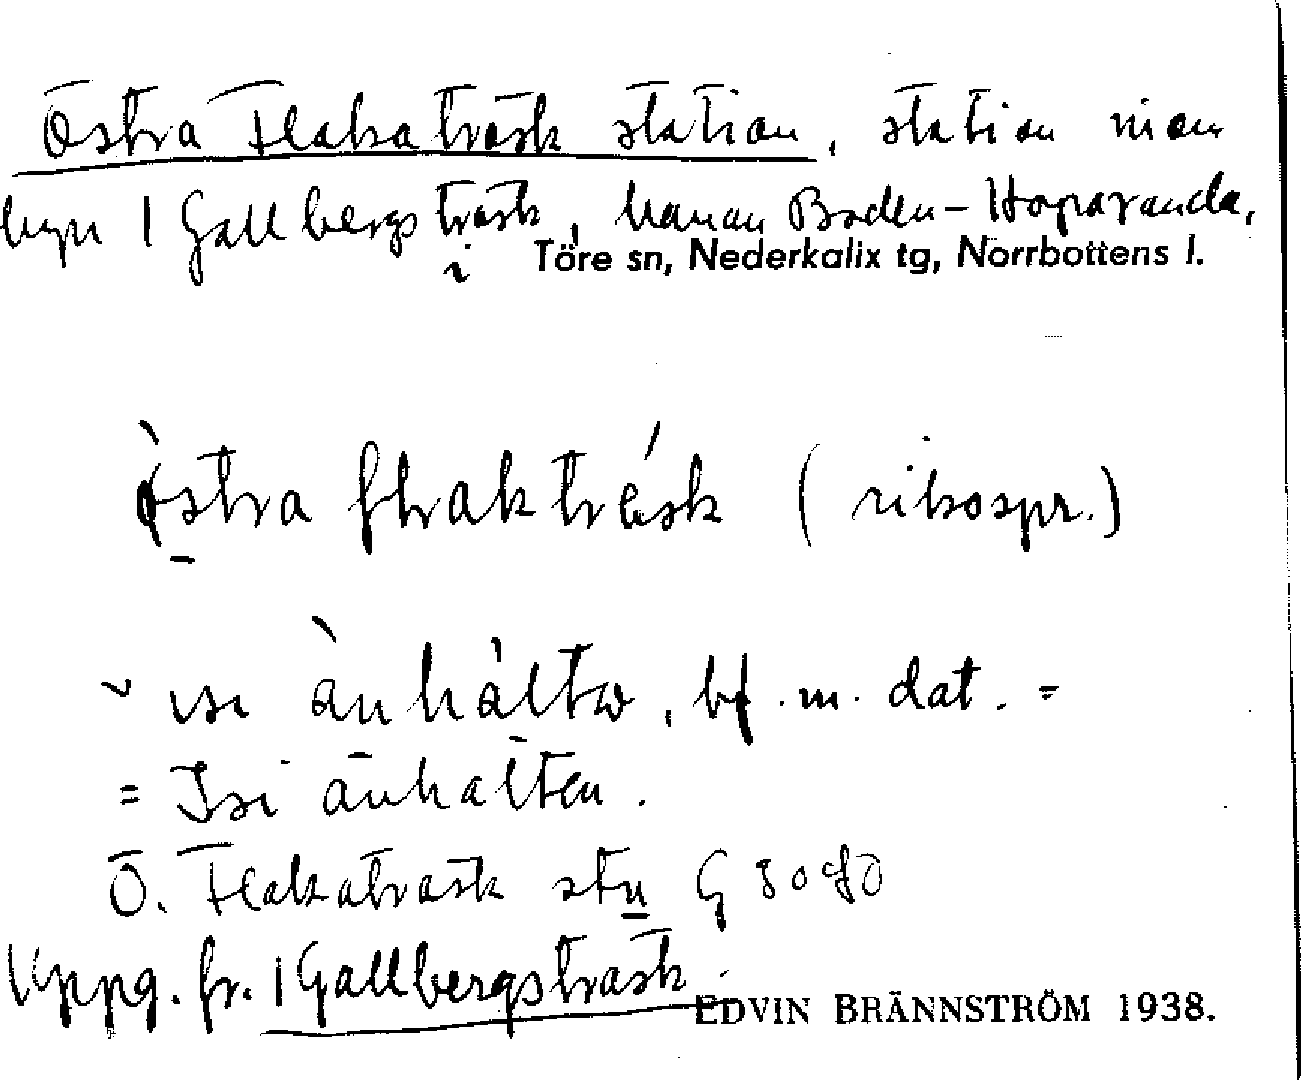 Östra Flakaträsk station, station inom
byn / Gällbergsträsk, banan Boden–Haparanda,
i Töre sn, Nederkalix tg, Norrbottens l.
östra flrakträsk (riksspr.)
isi ànhàlta, bf. m. dat. =
= Isi anhalten.
Ö. Flakaträsk stn G 8080
Uppg. fr. / Gällbergsträsk.
EDVIN BRÄNNSTRÖM 1938.